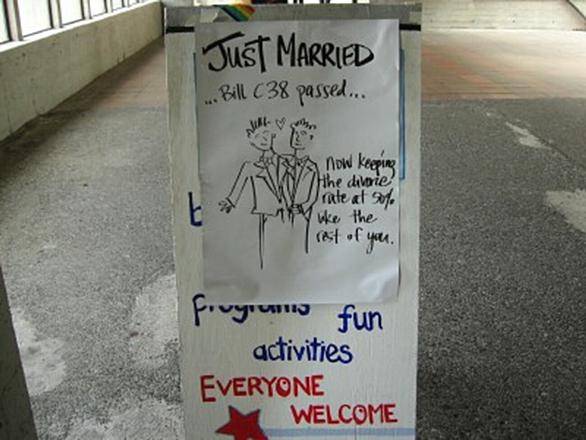 JUST MARRIED
...Bill C38 passed...
now keeping
the divorce
rate at 50%
like the
rest of you.
programs fun
activities
EVERYONE
WELCOME